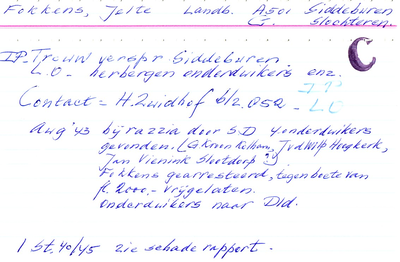 Fokkens, Jelte Landb. A501 Siddeburen
G. Slochteren.
C
I.P. Trouw verspr Siddeburen.
L.O - herbergen onderduikers enz.
I P
Contact = H. Zuidhof blz. 052 - LO
Aug '43 bij razzia door S.D 4 onderduikers
gevonden. (G Kroon Kolham, J vd Wilp Hoogkerk,
Jan Vienink Slootdorp ?)
Fokkens gearresteerd, tegen boete van
fl. 2000,- vrijgelaten.
Onderduikers naar Dld.
1 St. 40/45 zie schade rapport.